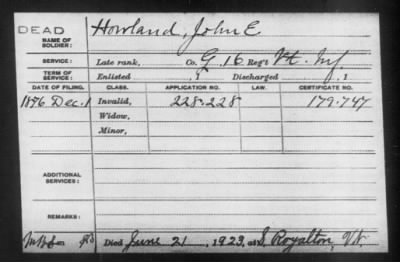 DEAD
NAME OF SOLDIER: Howland, John E
SERVICE: Late rank, Co. G, 16 Reg't Vt. Inf
TERM OF SERVICE: Enlisted , 1 Discharged , 1
DATE OF FILING. CLASS. APPLICATION NO. LAW. CERTIFICATE NO.
1876 Dec. 1 Invalid, 228.228 179.747
Widow,
Minor,
ADDITIONAL SERVICES:
REMARKS:
Died June 21, 1923, at S. Royalton, Vt.